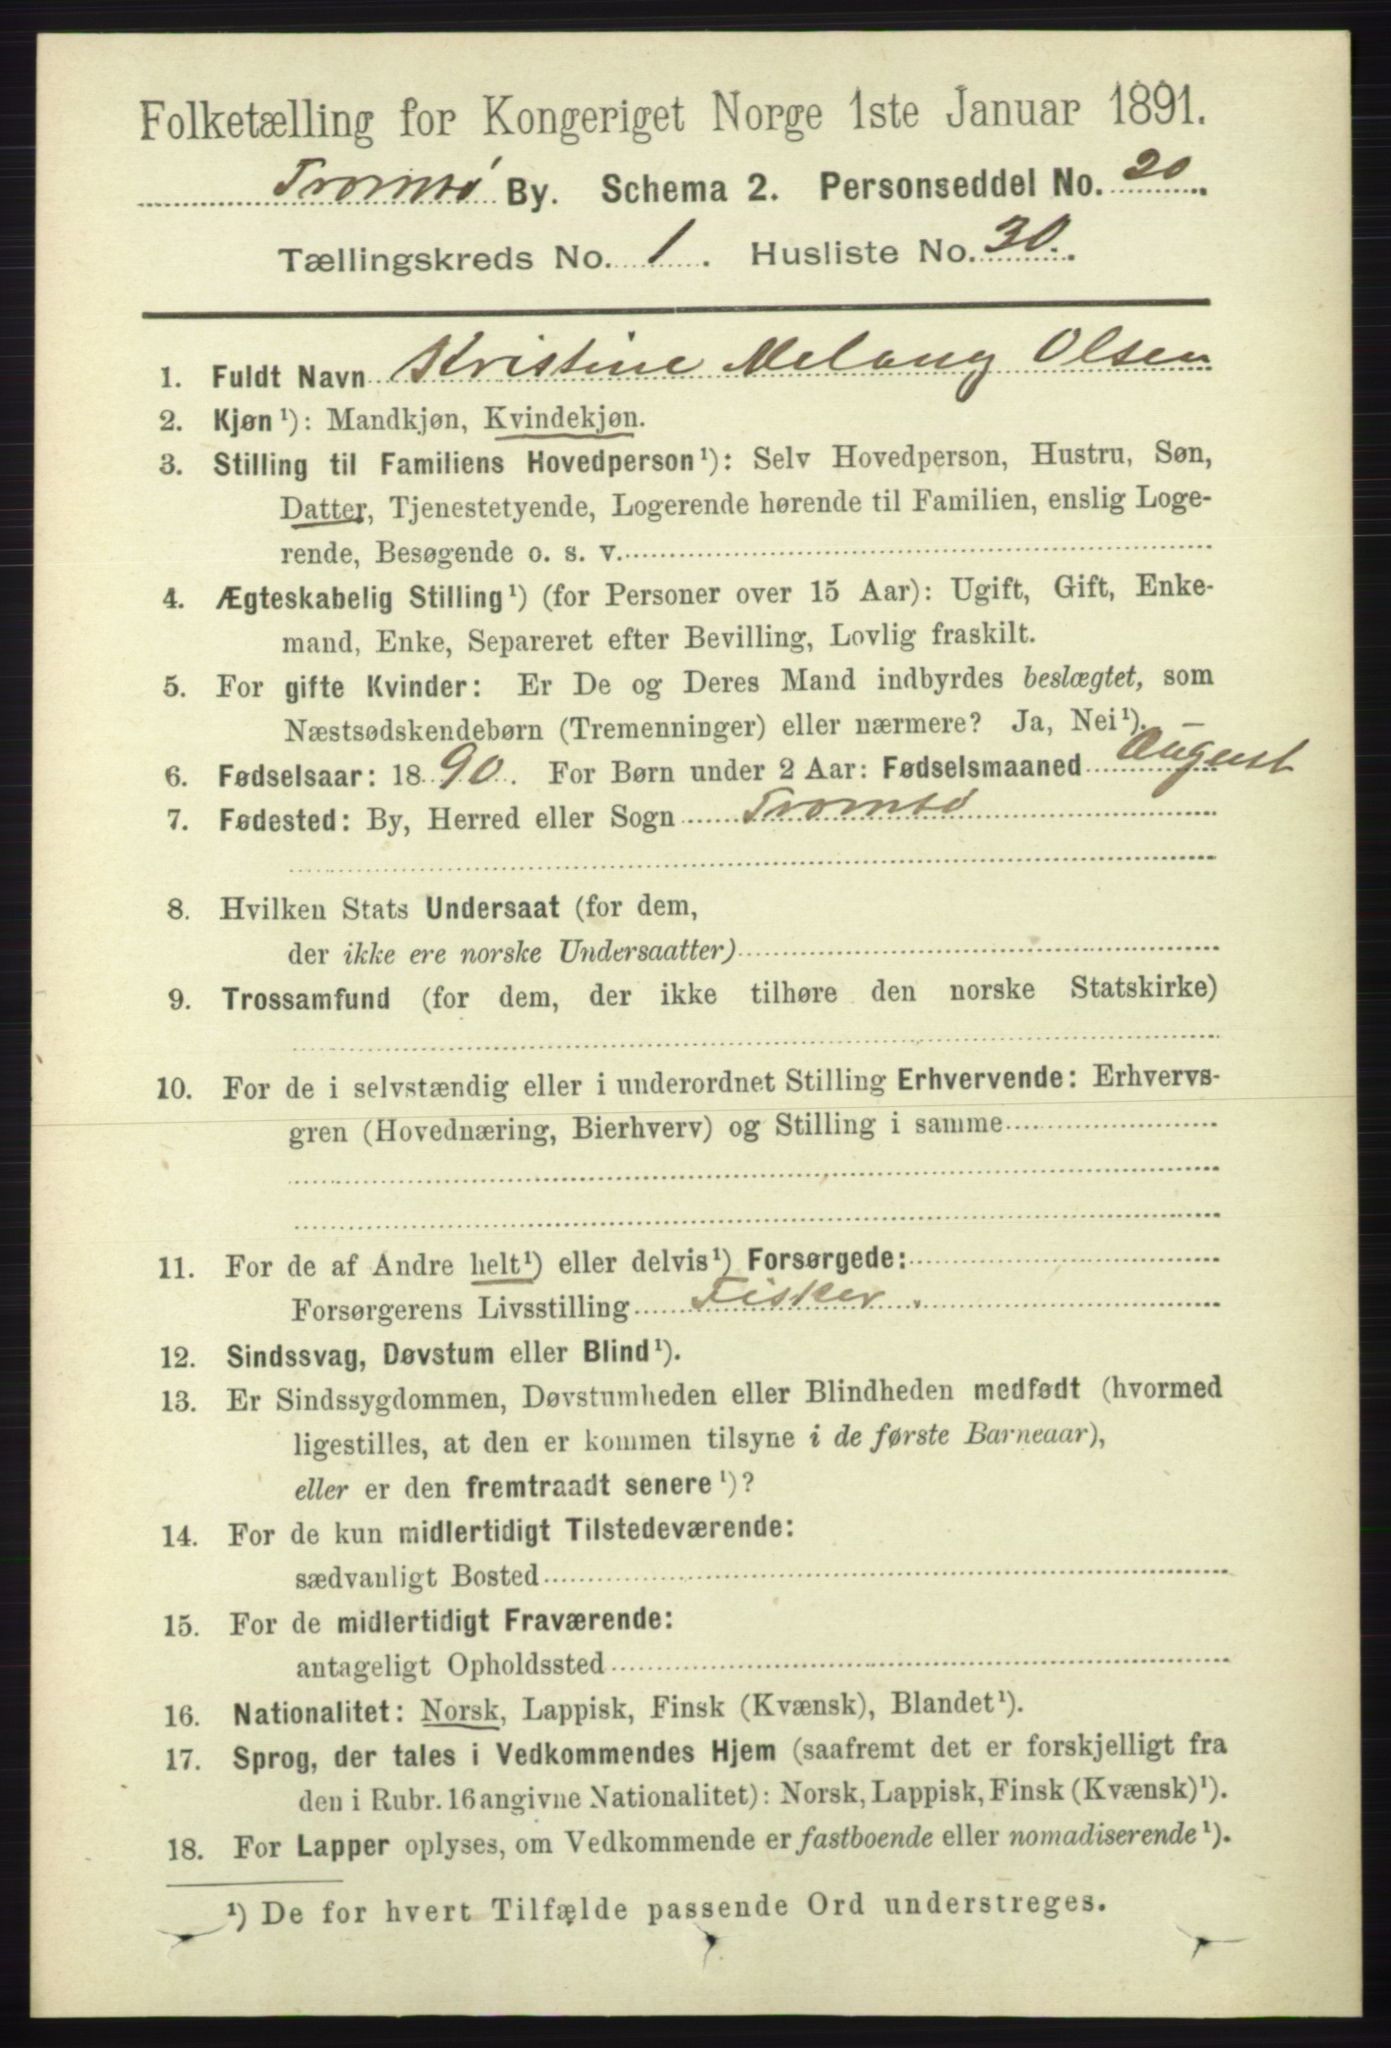 Folketælling for Kongeriget Norge 1ste Januar 1891.
Tromsø By. Schema 2. Personseddel No. 20.
Tællingskreds No. 1. Husliste No. 30.
1. Fuldt Navn Kristine Melany Olsen
2. Kjøn¹): Mandkjøn, Kvindekjøn.
3. Stilling til Familiens Hovedperson¹): Selv Hovedperson, Hustru, Søn,
Datter, Tjenestetyende, Logerende hørende til Familien, enslig Loge-
rende, Besøgende o. s. v.
4. Ægteskabelig Stilling¹) (for Personer over 15 Aar): Ugift, Gift, Enke-
mand, Enke, Separeret efter Bevilling, Lovlig fraskilt.
5. For gifte Kvinder: Er De og Deres Mand indbyrdes beslægtet, som
Næstsødskendebørn (Tremenninger) eller nærmere? Ja, Nei¹). –
6. Fødselsaar: 1890. For Børn under 2 Aar: Fødselsmaaned August
7. Fødested: By, Herred eller Sogn Tromsø
8. Hvilken Stats Undersaat (for dem,
der ikke ere norske Undersaatter)
9. Trossamfund (for dem, der ikke tilhøre den norske Statskirke)
10. For de i selvstændig eller i underordnet Stilling Erhvervende: Erhvervs-
gren (Hovednæring, Bierhverv) og Stilling i samme
11. For de af Andre helt¹) eller delvis¹) Forsørgede:
Forsørgerens Livsstilling Fisker.
12. Sindssvag, Døvstum eller Blind¹).
13. Er Sindssygdommen, Døvstumheden eller Blindheden medfødt (hvormed
ligestilles, at den er kommen tilsyne i de første Barneaar),
eller er den fremtraadt senere¹)?
14. For de kun midlertidigt Tilstedeværende:
sædvanligt Bosted
15. For de midlertidigt Fraværende:
antageligt Opholdssted
16. Nationalitet: Norsk, Lappisk, Finsk (Kvænsk), Blandet¹).
17. Sprog, der tales i Vedkommendes Hjem (saafremt det er forskjelligt fra
den i Rubr. 16 angivne Nationalitet): Norsk, Lappisk, Finsk (Kvænsk)¹).
18. For Lapper oplyses, om Vedkommende er fastboende eller nomadiserende¹).
¹) De for hvert Tilfælde passende Ord understreges.